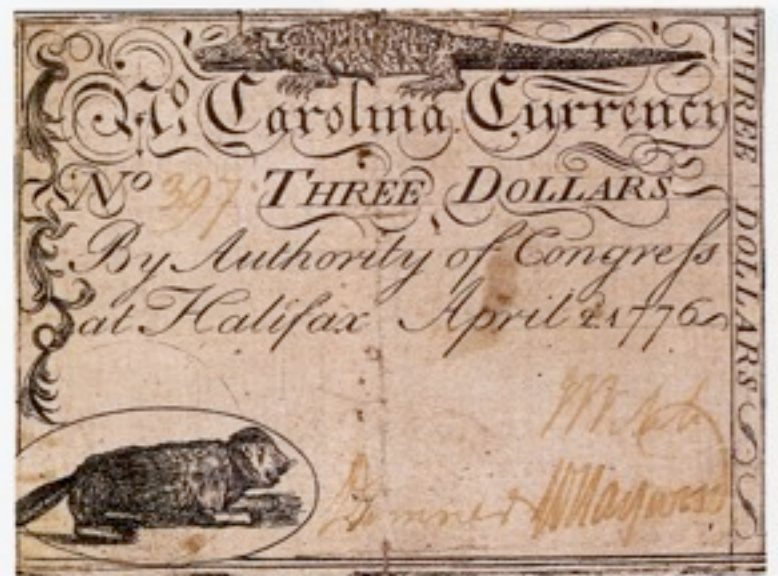 No. Carolina Currency
No 397 THREE DOLLARS
By Authority of Congress
at Halifax April 2 1776
THREE DOLLARS